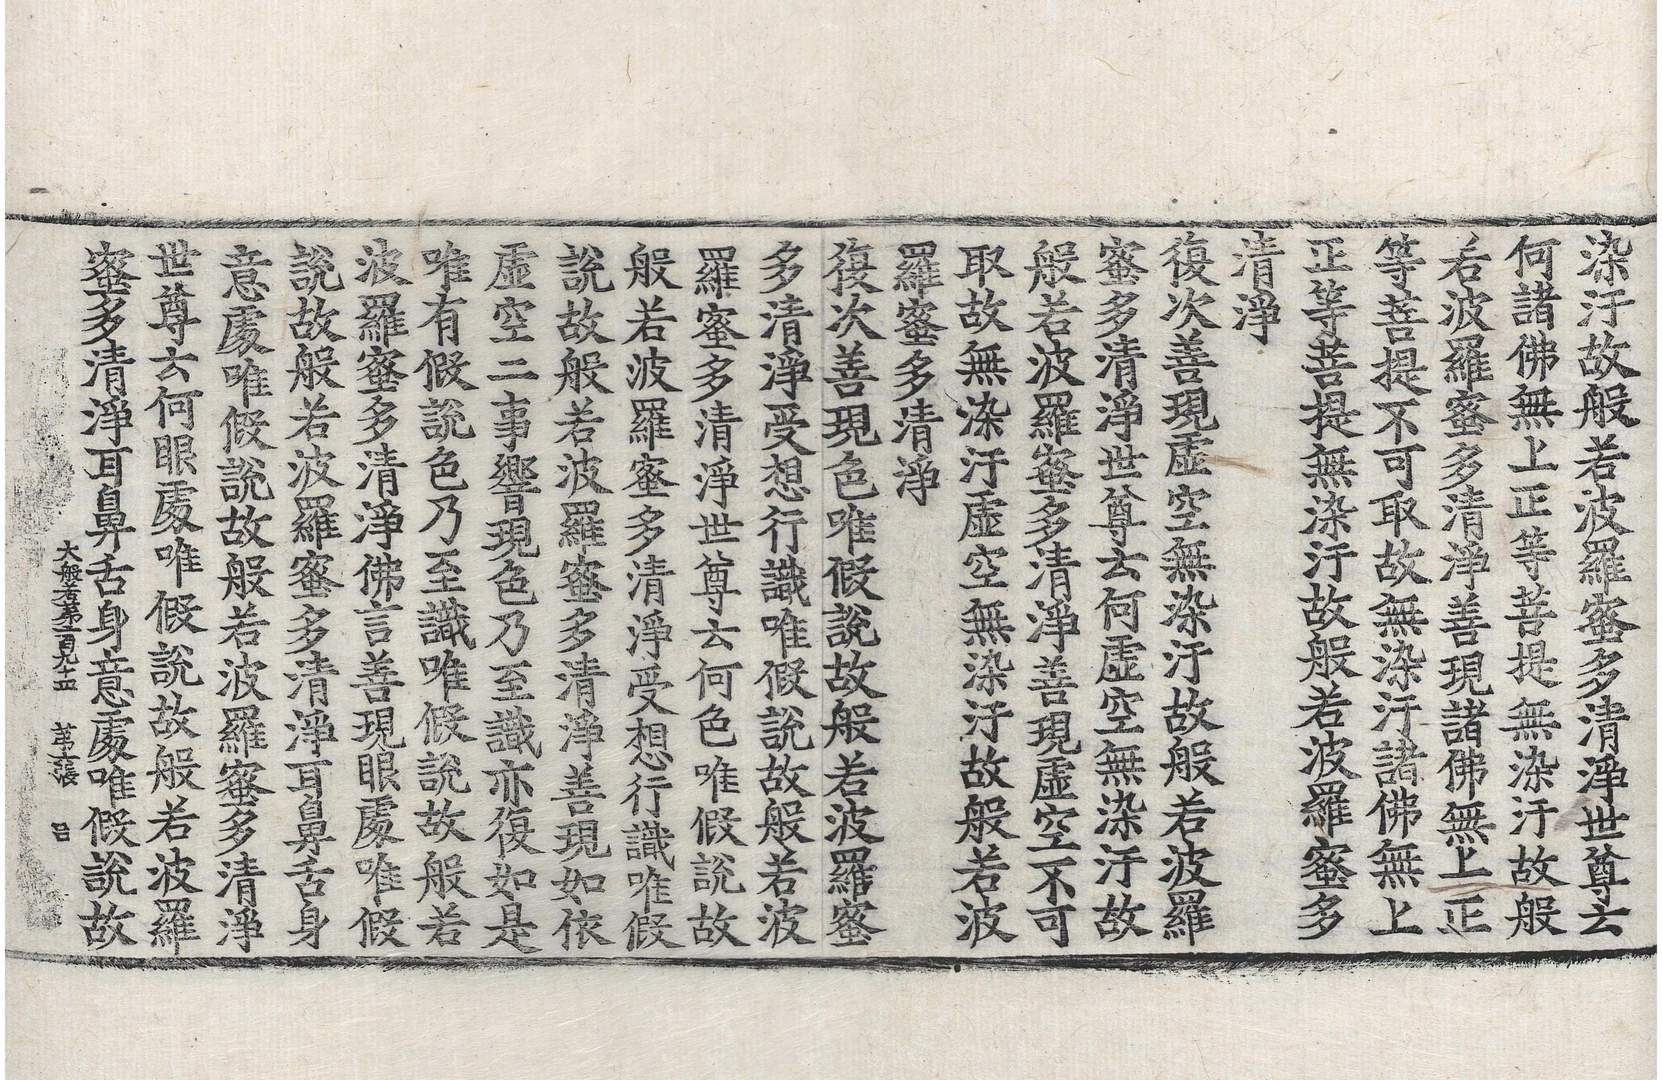 染汙故般若波羅蜜多清淨世尊云
何諸佛無上正等菩提無染汙故般
若波羅蜜多清淨善現諸佛無上正
等菩提不可取故無染汙諸佛無上
正等菩提無染汙故般若波羅蜜多
清淨
復次善現虛空無染汙故般若波羅
蜜多清淨世尊云何虛空無染汙故
般若波羅蜜多清淨善現虛空不可
取故無染汙虛空無染汙故般若波
羅蜜多清淨
復次善現色唯假說故般若波羅蜜
多清淨受想行識唯假說故般若波
羅蜜多清淨世尊云何色唯假說故
般若波羅蜜多清淨受想行識唯假
說故般若波羅蜜多清淨善現如依
虛空二事響現色乃至識亦復如是
唯有假說色乃至識唯假說故般若
波羅蜜多清淨佛言善現眼處唯假
說故般若波羅蜜多清淨耳鼻舌身
意處唯假說故般若波羅蜜多清淨
世尊云何眼處唯假說故般若波羅
蜜多清淨耳鼻舌身意處唯假說故
大般若第二百九十四